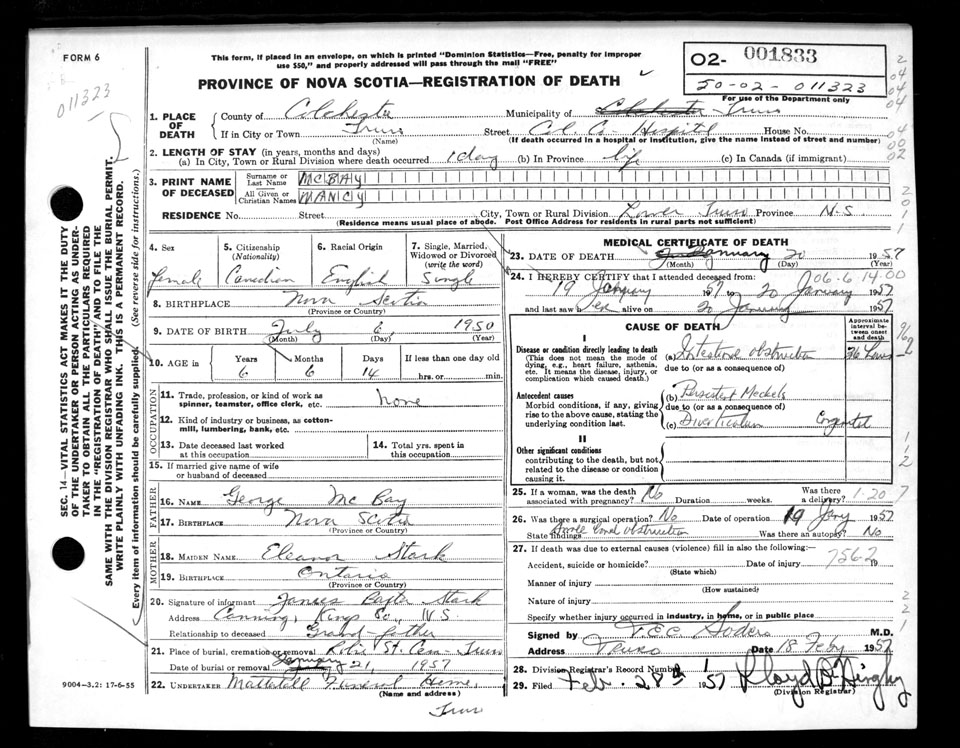 FORM 6
011323
This form, if placed in an envelope, on which is printed "Dominion Statistics—Free, penalty for improper
use $50," and properly addressed will pass through the mail "FREE"
PROVINCE OF NOVA SCOTIA—REGISTRATION OF DEATH
O2- 001833
50-02-011323
For use of the Department only
SEC. 14—VITAL STATISTICS ACT MAKES IT THE DUTY
OF THE UNDERTAKER OR PERSON ACTING AS UNDER-
TAKER TO OBTAIN ALL THE PARTICULARS REQUIRED
IN THE "REGISTRATION OF DEATH" AND TO FILE THE
SAME WITH THE DIVISION REGISTRAR WHO SHALL ISSUE THE BURIAL PERMIT.
WRITE PLAINLY WITH UNFADING INK. THIS IS A PERMANENT RECORD.
Every item of information should be carefully supplied. (See reverse side for instructions.)
1. PLACE OF DEATH
County of Colchester Municipality of Colchester Truro
If in City or Town Truro Street Col. Co. Hospital House No.
(Name) (If death occurred in a hospital or institution, give the name instead of street and number)
2. LENGTH OF STAY (in years, months and days)
(a) In City, Town or Rural Division where death occurred 1 day (b) In Province life (c) In Canada (if immigrant)
3. PRINT NAME OF DECEASED
Surname or Last Name McBAY
All Given or Christian Names NANCY
RESIDENCE No. Street City, Town or Rural Division Lower Truro Province N.S.
(Residence means usual place of abode. Post Office Address for residents in rural parts not sufficient)
4. Sex
female
5. Citizenship
(Nationality)
Canadian
6. Racial Origin
English
7. Single, Married,
Widowed or Divorced
(write the word)
Single
8. BIRTHPLACE Nova Scotia
(Province or Country)
9. DATE OF BIRTH July 6, 1950
(Month) (Day) (Year)
10. AGE in
Years Months Days If less than one day old
6 6 14 hrs. or min.
OCCUPATION
11. Trade, profession, or kind of work as
spinner, teamster, office clerk, etc. None
12. Kind of industry or business, as cotton-
mill, lumbering, bank, etc.
13. Date deceased last worked
at this occupation
14. Total yrs. spent in
this occupation
15. If married give name of wife
or husband of deceased
FATHER
16. NAME George McBay
17. BIRTHPLACE Nova Scotia
(Province or Country)
MOTHER
18. MAIDEN NAME Eleanor Stark
19. BIRTHPLACE Ontario
(Province or Country)
20. Signature of informant Stark
Address Canning, Kings Co., N.S.
Relationship to deceased Grand-father
21. Place of burial, cremation or removal Robie St. Cem. Truro
Date of burial or removal January 21, 1957
22. UNDERTAKER Mattatall Funeral Home
(Name and address)
Truro
9004—3.2: 17-6-55
MEDICAL CERTIFICATE OF DEATH
23. DATE OF DEATH January 20 1957
(Month) (Day)
24. I HEREBY CERTIFY that I attended deceased from:
06-6 14.00
19 January 1957 to 20 January 1957
and last saw her alive on 20 January 1957
CAUSE OF DEATH
Approximate
interval be-
tween onset
and death
I
Disease or condition directly leading to death
(This does not mean the mode of
dying, e.g., heart failure, asthenia,
etc. It means the disease, injury, or
complication which caused death.)
(a) Intestinal obstruction 36 hours
due to (or as a consequence of)
Antecedent causes
Morbid conditions, if any, giving
rise to the above cause, stating the
underlying condition last.
(b) Persistent Meckels
due to (or as a consequence of)
(c) Diverticulum
II
Other significant conditions
contributing to the death, but not
related to the disease or condition
causing it.
25. If a woman, was the death
associated with pregnancy? No Duration weeks. Was there
a delivery?
1-20-7
26. Was there a surgical operation? No Date of operation 19 Jany 1957
State findings Small bowel obstruction Was there an autopsy? No
27. If death was due to external causes (violence) fill in also the following:—
Accident, suicide or homicide? Date of injury 19
(State which)
756.2
Manner of injury
(How sustained)
Nature of injury
Specify whether injury occurred in industry, in home, or in public place
Signed by M.D.
Address Truro Date 18 Feby 1957
28. Division Registrar's Record Number 1
29. Filed Feb. 28th 1957
(Division Registrar)